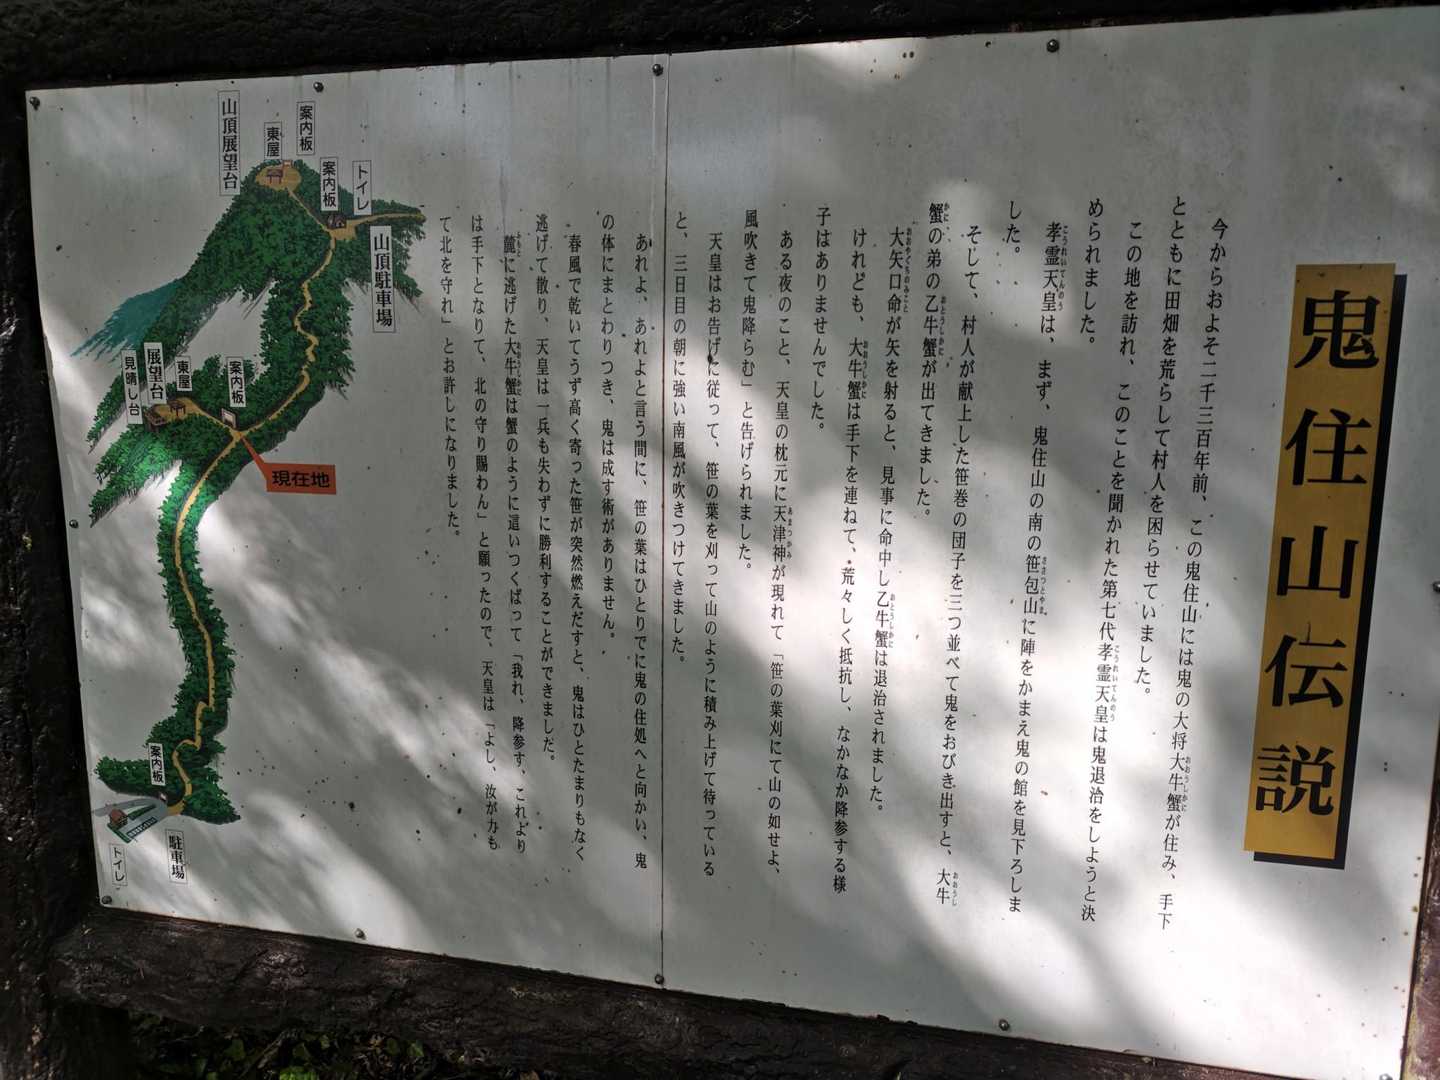 鬼住山伝説
今からおよそ二千三百年前、この鬼住山には鬼の大将大牛蟹が住み、手下
おおうしかに
とともに田畑を荒らして村人を困らせていました。
この地を訪れ、このことを聞かれた第七代孝霊天皇は鬼退治をしようと決
こうれいてんのう
められました。
孝霊天皇は、まず、鬼住山の南の笹包山に陣をかまえ鬼の館を見下ろしま
こうれいてんのう
ささつとやま
した。
そして、村人が献上した笹巻の団子を三つ並べて鬼をおびき出すと、大牛
おおうし
蟹の弟の乙牛蟹が出てきました。
かに
おとうしかに
大矢口命が矢を射ると、見事に命中し乙牛蟹は退治されました。
おおやくちのみこと
おとうしかに
けれども、大牛蟹は手下を連ねて、荒々しく抵抗し、なかなか降参する様
おおうしかに
子はありませんでした。
ある夜のこと、天皇の枕元に天津神が現れて「笹の葉刈にて山の如せよ、
あまつかみ
風吹きて鬼降らむ」と告げられました。
天皇はお告げに従って、笹の葉を刈って山のように積み上げて待っている
と、三日目の朝に強い南風が吹きつけてきました。
あれよ、あれよと言う間に、笹の葉はひとりでに鬼の住処へと向かい、鬼
の体にまとわりつき、鬼は成す術がありません。
春風で乾いてうず高く寄った笹が突然燃えだすと、鬼はひとたまりもなく
逃げて散り、天皇は一兵も失わずに勝利することができました。
麓に逃げた大牛蟹は蟹のように這いつくばって「我れ、降参す、これより
ふもと
おおうしかに
は手下となりて、北の守り賜わん」と願ったので、天皇は「よし、汝が力も
て北を守れ」とお許しになりました。
山頂展望台
東屋
案内板
案内板
トイレ
山頂駐車場
見晴し台
展望台
東屋
案内板
現在地
案内板
トイレ
駐車場